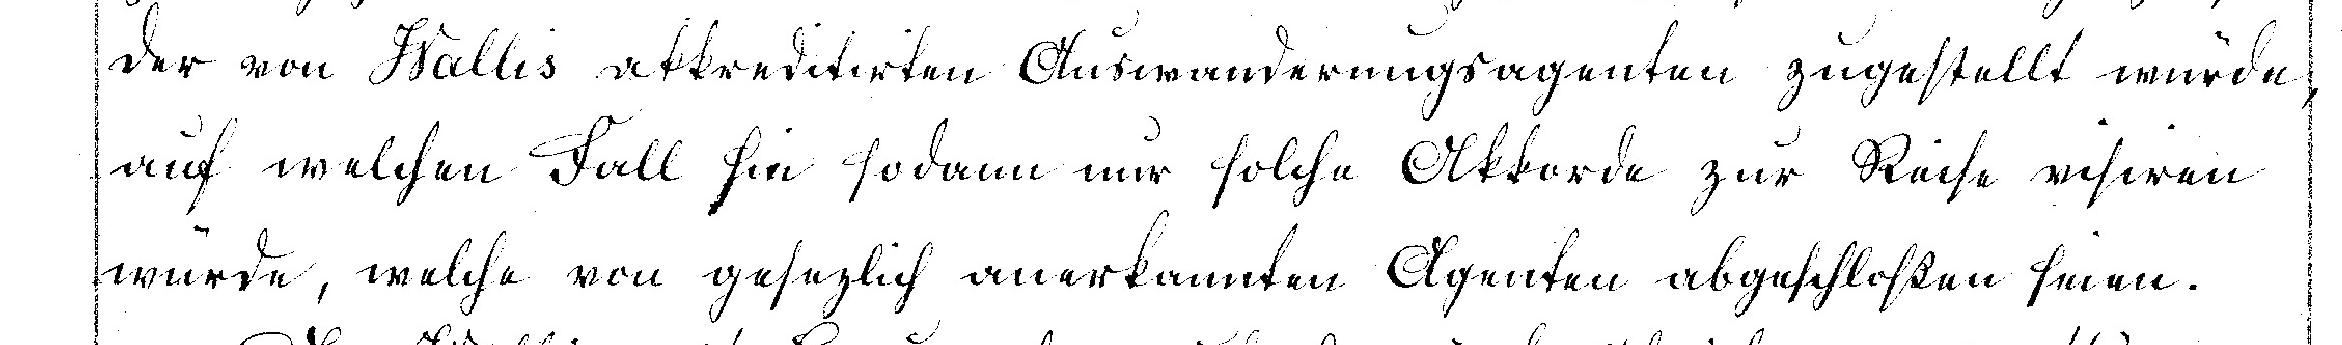 der von Wallis akkreditirten Auswanderungsagenten zugestellt würde,
auf welchen Fall hin sodann nur solche Akkorde zur Reise visiren
würde, welche von gesezlich anerkannten Agenten abgeschloßen seien.